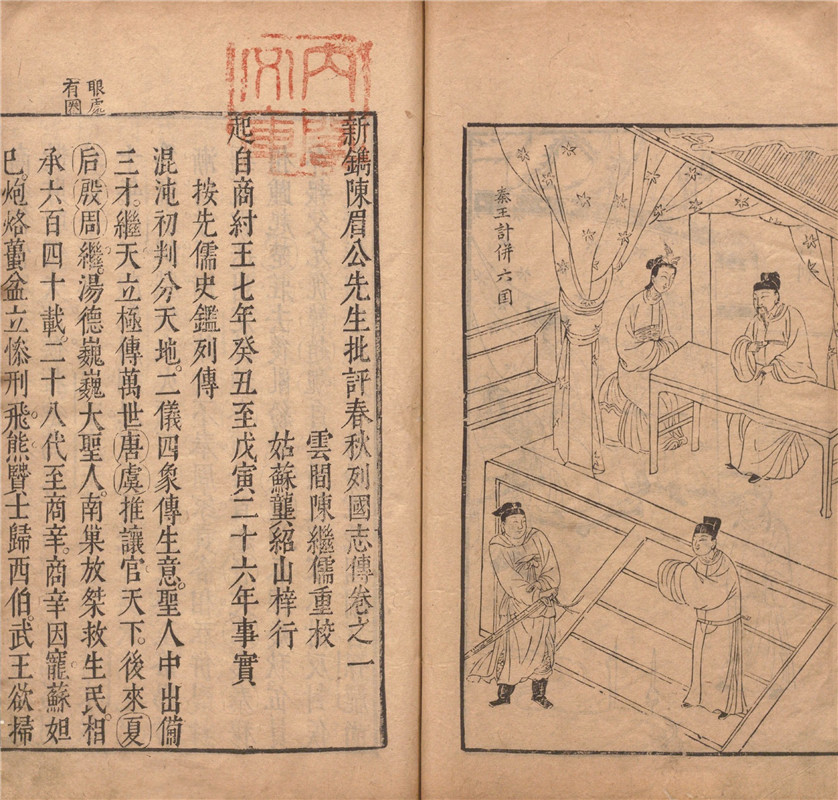 秦王計併六囯
眼處
有圈
新鐫陳眉公先生批評春秋列國志傳卷之一
雲間陳繼儒重校
姑蘇龔紹山梓行
起自商紂王七年癸丑至戊寅二十六年事實
按先儒史鑑列傳
混沌初判分天地。二儀四象傳生意。聖人中出備
三才。繼天立極傳萬世。唐虞推讓官天下。後來夏
后殷周繼。湯德巍巍大聖人。南巢放桀救生民。相
承六百四十載。二十八代至商辛。商辛因寵蘇妲
己。炮烙蠆盆立慘刑。飛熊賢士歸西伯。武王欲掃